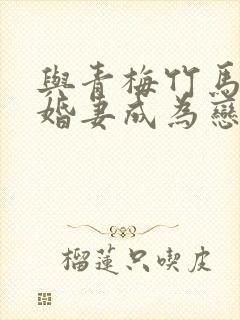 與青梅竹馬
婚妻成為戀
榴蓮只喫皮